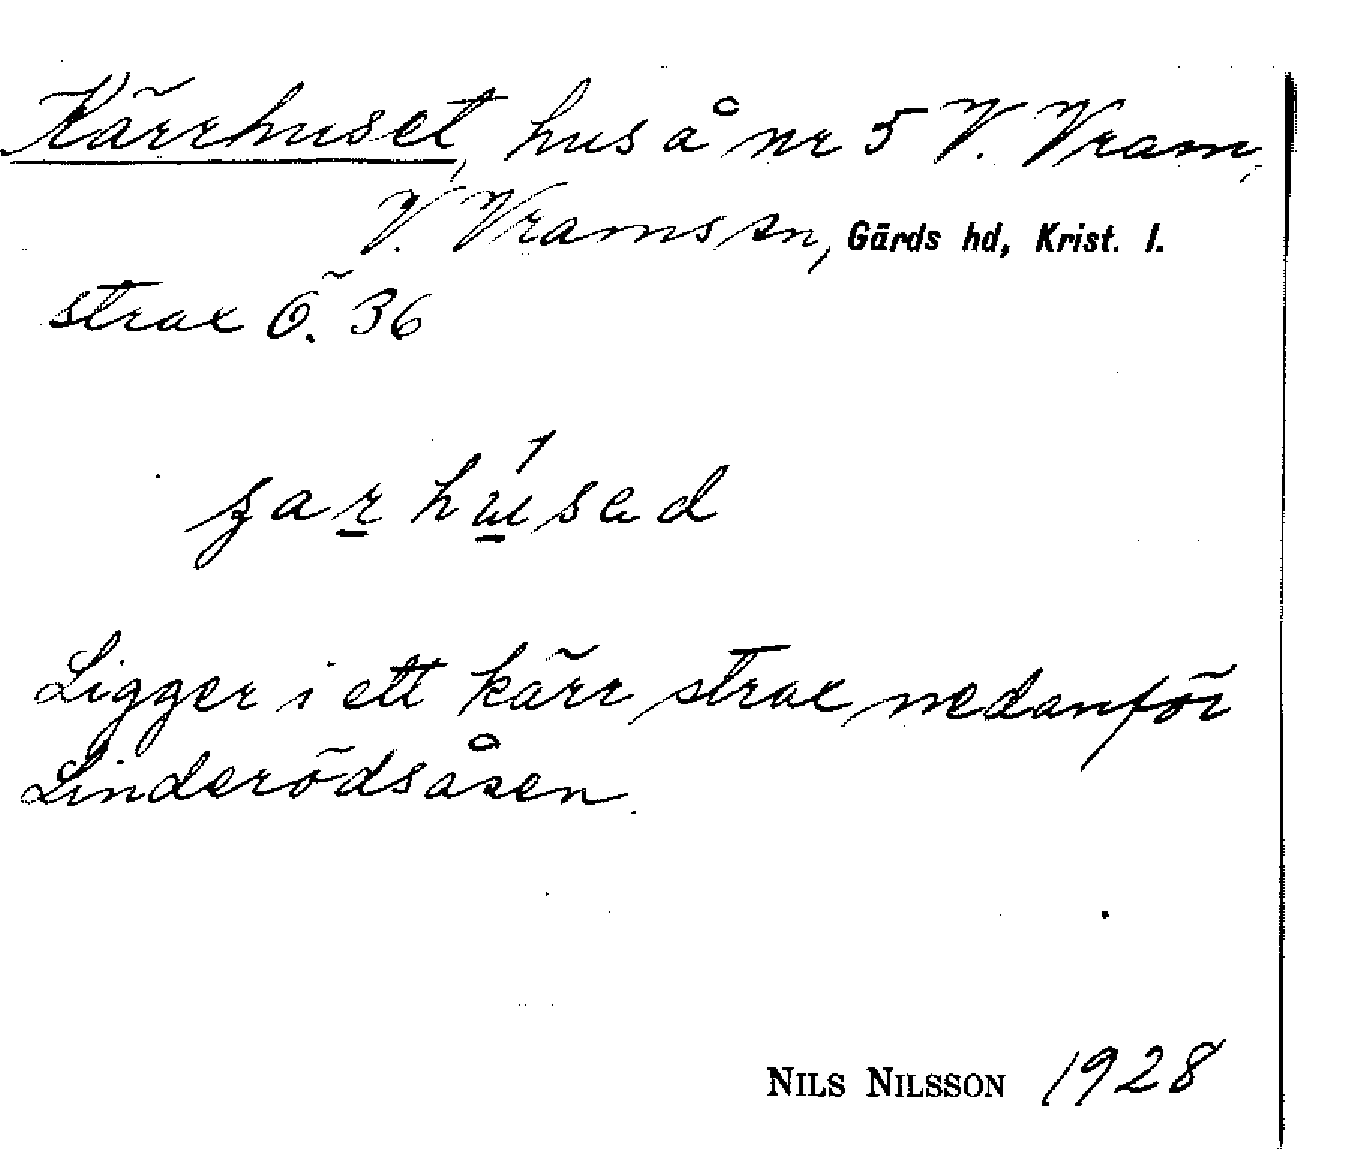 Kärrhuset, hus å nr 5 V. Vram,
V. Vrams sn, Gärds hd, Krist. l.
strax Ö. 36
Ligger i ett kärr strax nedanför
Linderödsåsen.
NILS NILSSON 1928